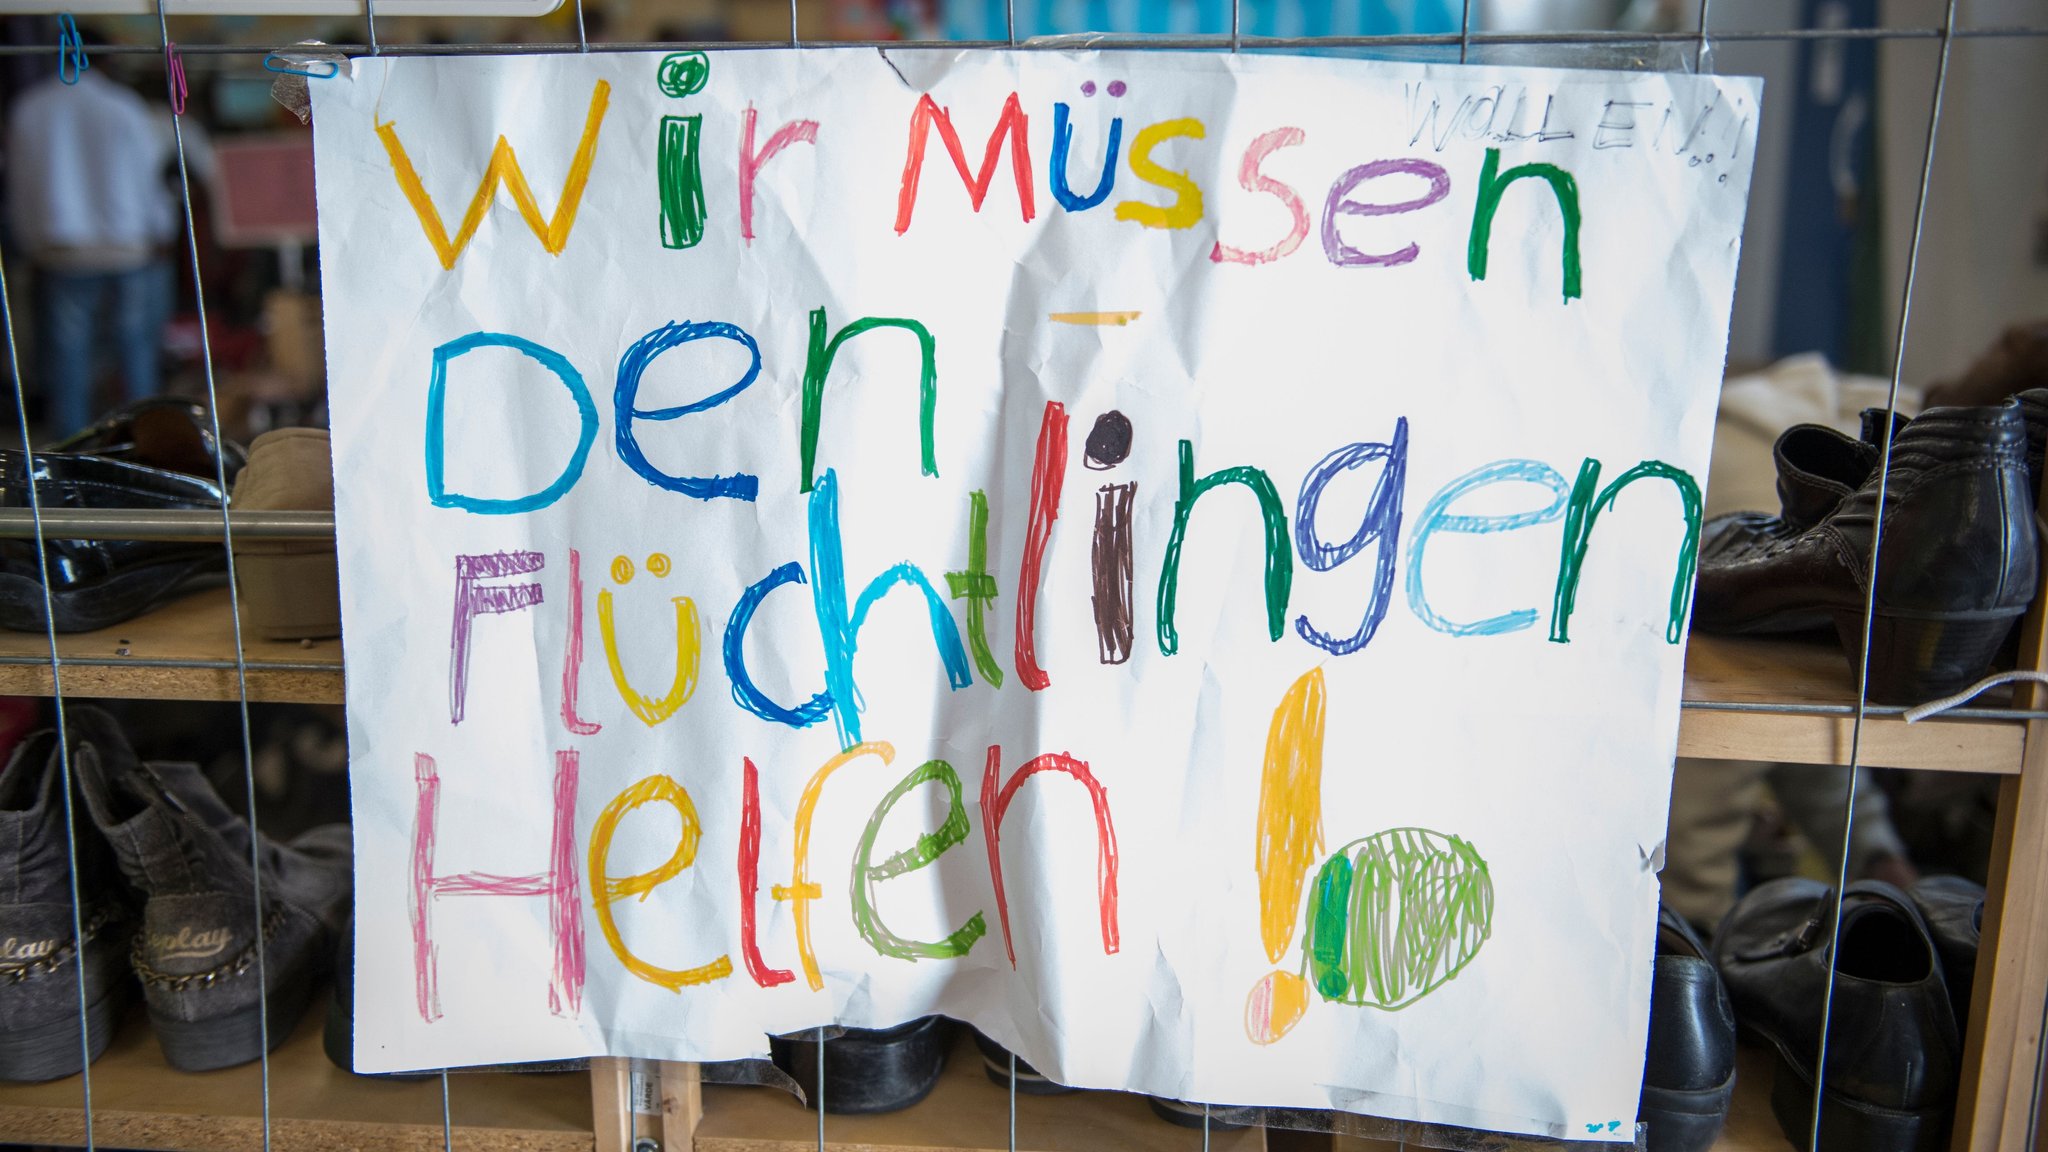 Wir Müssen
WOLLEN!!
Den
Flüchtlingen
Helfen!
play
play
VÄRDE